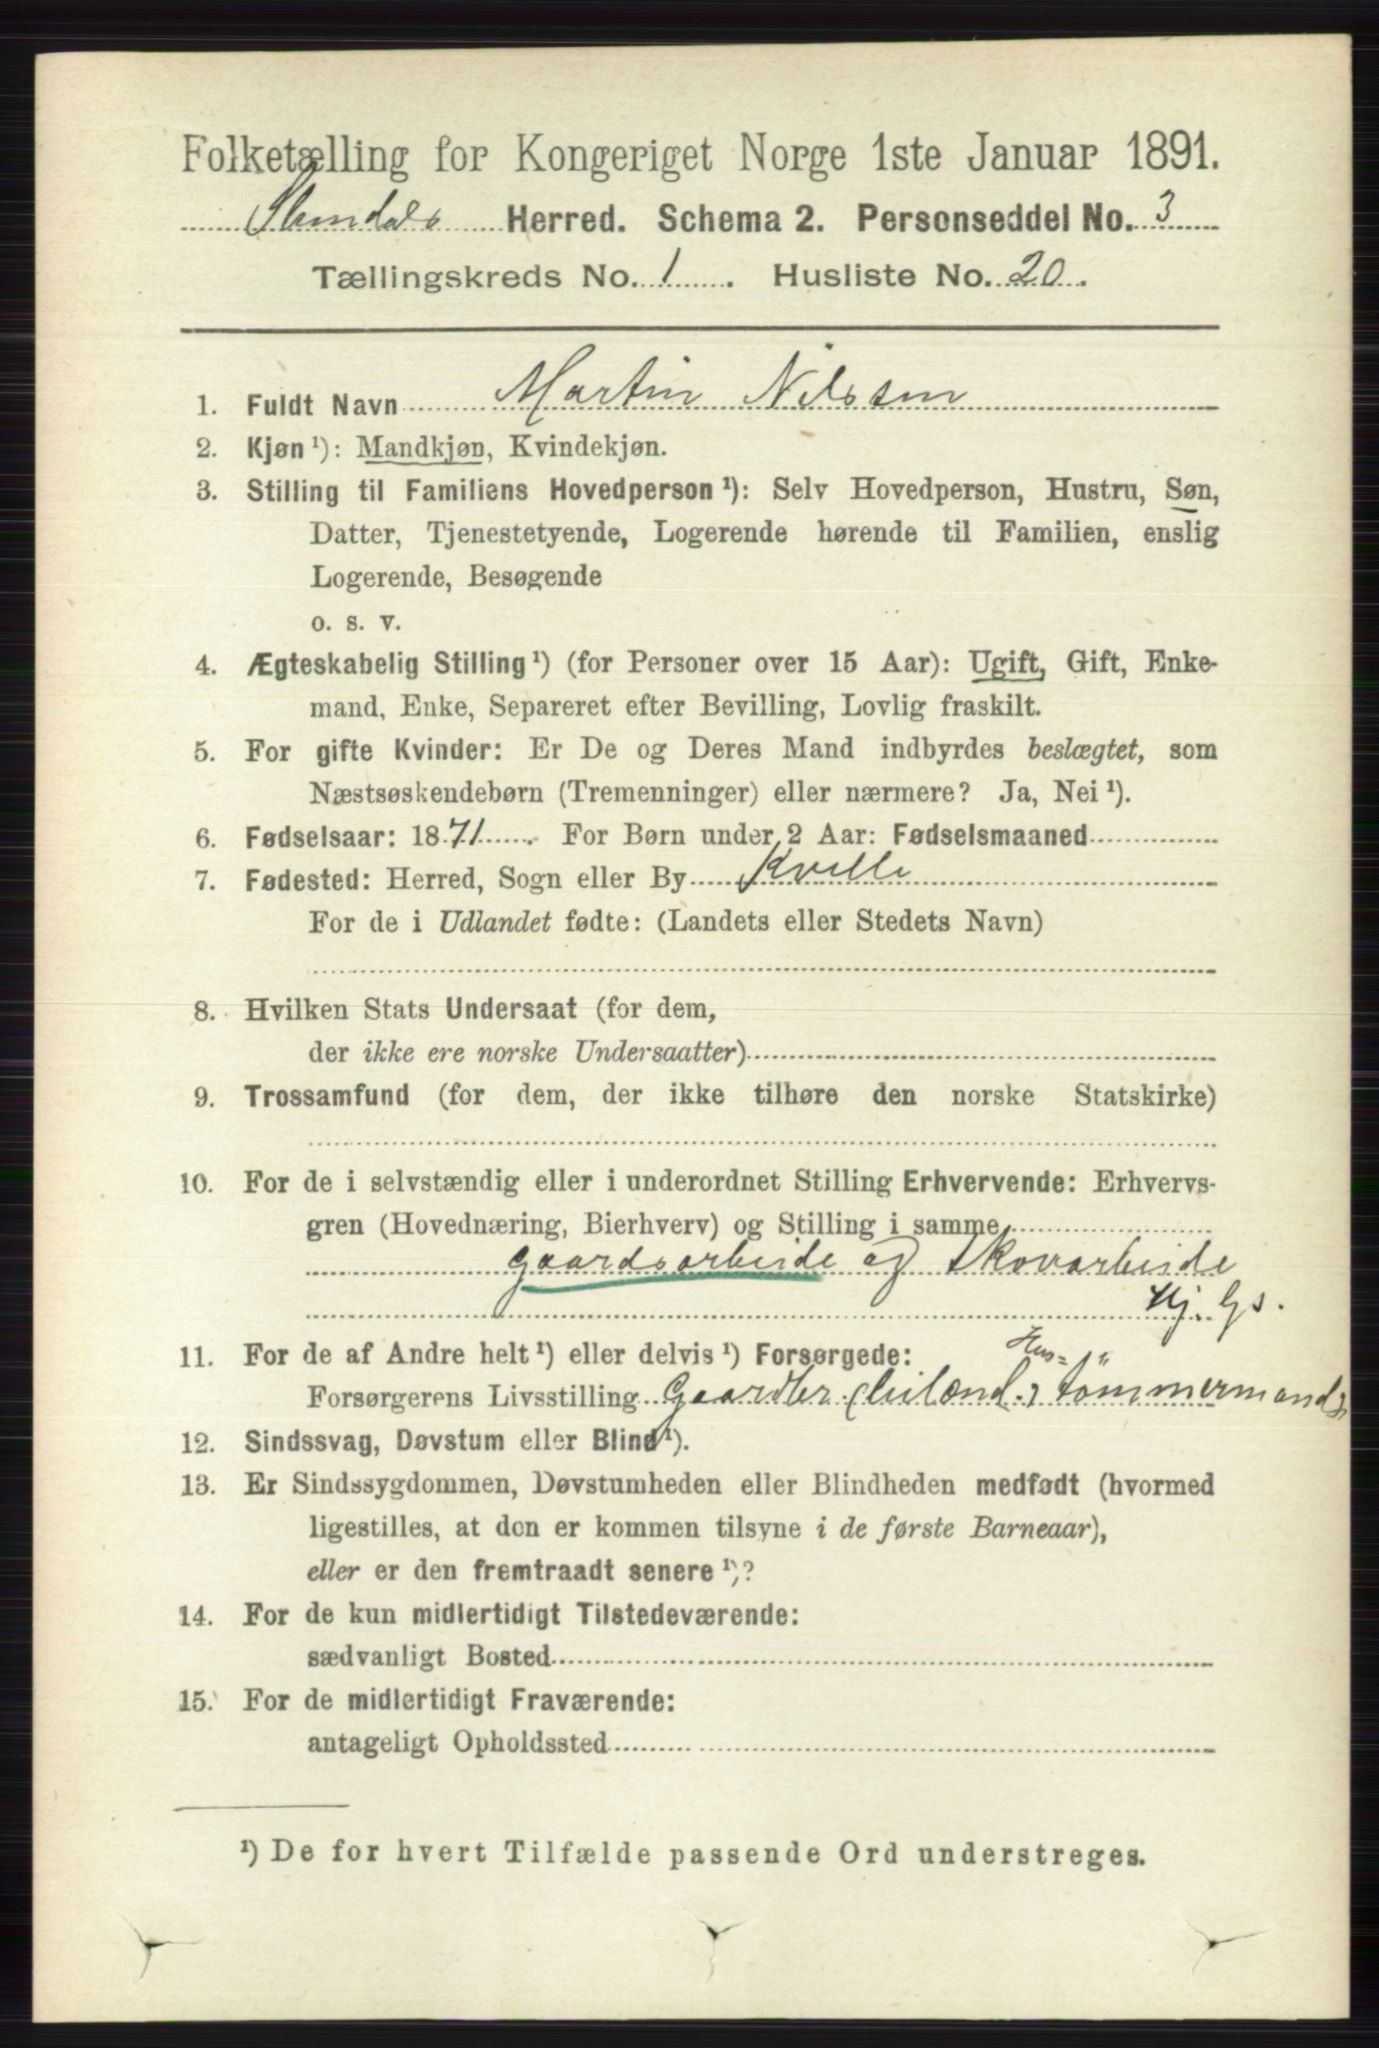 Folketælling for Kongeriget Norge 1ste Januar 1891.
Slemdals Herred. Schema 2. Personseddel No. 3
Tællingskreds No. 1. Husliste No. 20.
1. Fuldt Navn Martin Nilssen
2. Kjøn ¹): Mandkjøn, Kvindekjøn.
3. Stilling til Familiens Hovedperson ¹): Selv Hovedperson, Hustru, Søn,
Datter, Tjenestetyende, Logerende hørende til Familien, enslig
Logerende, Besøgende
o. s. v.
4. Ægteskabelig Stilling ¹) (for Personer over 15 Aar): Ugift, Gift, Enke-
mand, Enke, Separeret efter Bevilling, Lovlig fraskilt.
5. For gifte Kvinder: Er De og Deres Mand indbyrdes beslægtet, som
Næstsøskendebørn (Tremenninger) eller nærmere? Ja, Nei ¹).
6. Fødselsaar: 1871. For Børn under 2 Aar: Fødselsmaaned
7. Fødested: Herred, Sogn eller By Kville
For de i Udlandet fødte: (Landets eller Stedets Navn)
8. Hvilken Stats Undersaat (for dem,
der ikke ere norske Undersaatter)
9. Trossamfund (for dem, der ikke tilhøre den norske Statskirke)
10. For de i selvstændig eller i underordnet Stilling Erhvervende: Erhvervs-
gren (Hovednæring, Bierhverv) og Stilling i samme
gaardsarbeide og skovarbeide
Hj. Gs.
11. For de af Andre helt ¹) eller delvis ¹) Forsørgede:
Hus= "
Forsørgerens Livsstilling Gaardbr. tømmermand
12. Sindssvag, Døvstum eller Blind ¹).
13. Er Sindssygdommen, Døvstumheden eller Blindheden medfødt (hvormed
ligestilles, at den er kommen tilsyne i de første Barneaar),
eller er den fremtraadt senere ¹)?
14. For de kun midlertidigt Tilstedeværende:
sædvanligt Bosted
15. For de midlertidigt Fraværende:
antageligt Opholdssted
¹) De for hvert Tilfælde passende Ord understreges.